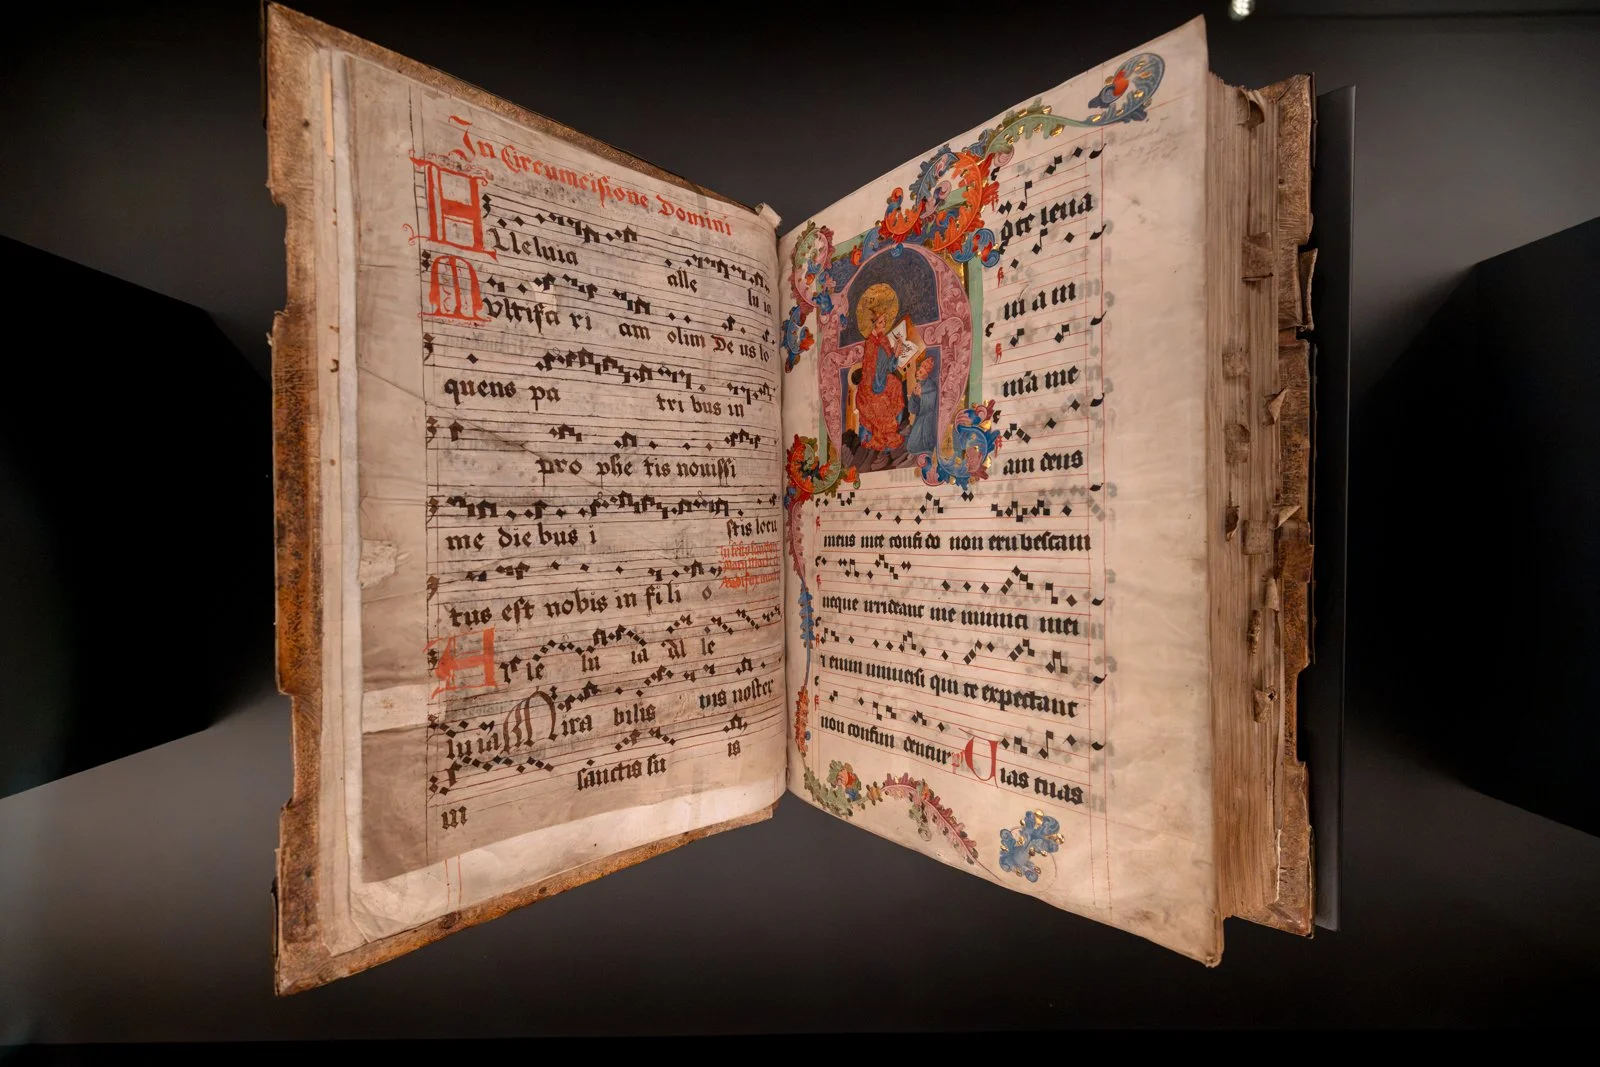 In Circumcisione Domini
Alleluia alle lu ia
Multifa ri am olim De us lo
quens pa tri bus in
pro phe tis novissi
me diebus i stis locu
tus est nobis in fi li o
Al le lu ia Al le
luia Mira bilis vis noster
sanctis su is
in
A d te leva
vi a m
m̄a me
am deus
meus in te confi do non erubescam
neque irrideant me inimici mei
et enim universi qui te expectant
non confun dentur p̄s Vias tuas